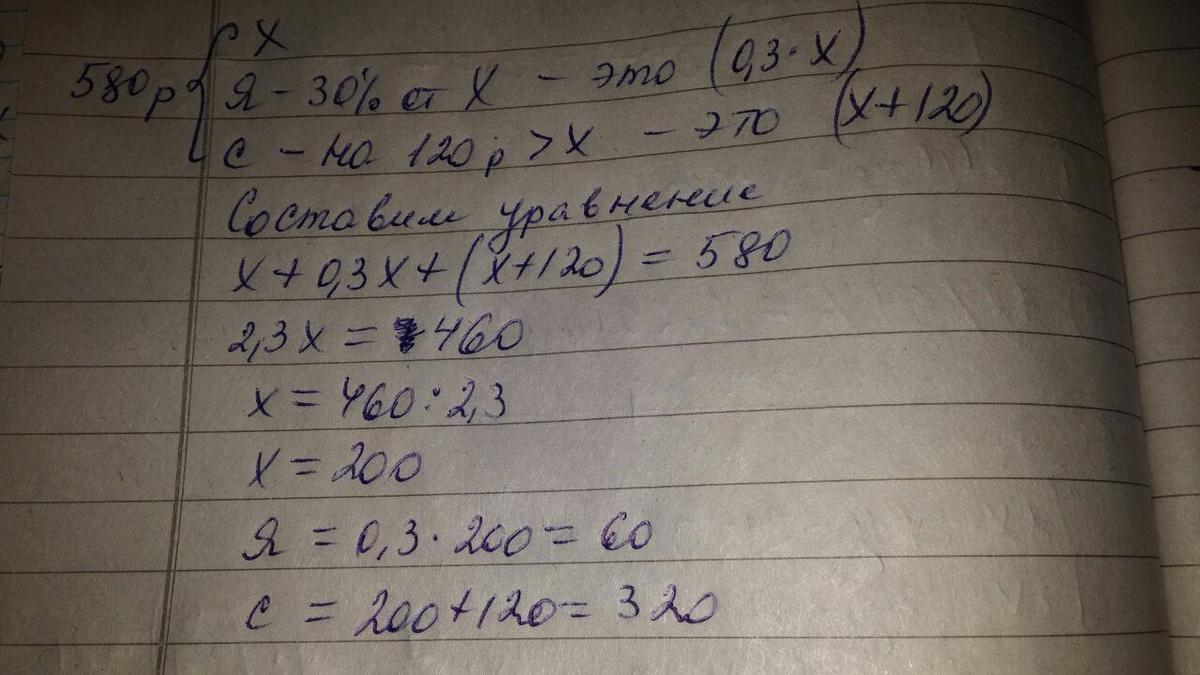 х
580р Я - 30% от х - это (0,3·х)
с - на 120р > х - это (х+120)
Составим уравнение
х + 0,3х + (х+120) = 580
2,3х = 460
х = 460 : 2,3
х = 200
Я = 0,3 · 200 = 60
с = 200+120 = 320